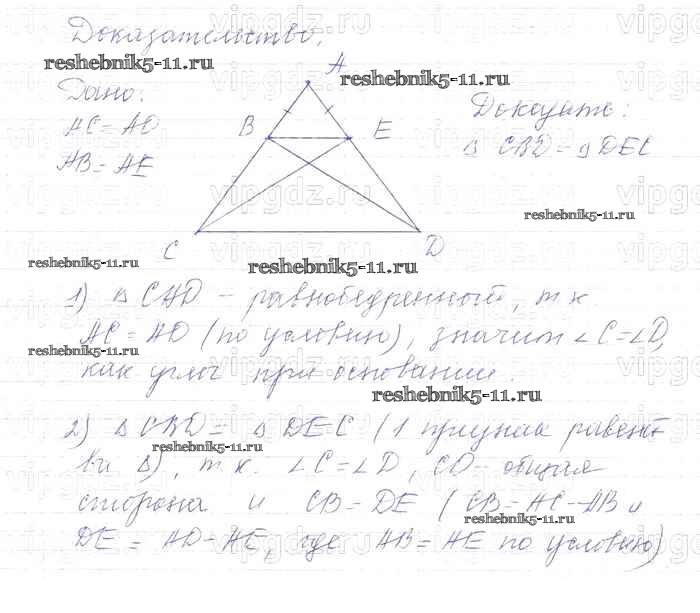 Доказательство.
reshebnik5-11.ru
A
reshebnik5-11.ru
Дано:
AC = AD
AB = AE
B
E
Докажите:
Δ CBD = Δ DEC
reshebnik5-11.ru
C
D
reshebnik5-11.ru
reshebnik5-11.ru
1) Δ CAD – равнобедренный, т.к.
AC = AD (по условию), значит ∠C = ∠D,
reshebnik5-11.ru
как углы при основании.
reshebnik5-11.ru
2) Δ CBD = Δ DEC (1 признак равенст-
reshebnik5-11.ru
ва Δ), т.к. ∠C = ∠D, CD – общая
сторона и CB = DE (CB = AC – AB и
reshebnik5-11.ru
DE = AD – AE, где AB = AE по условию)
vipgdz.ru